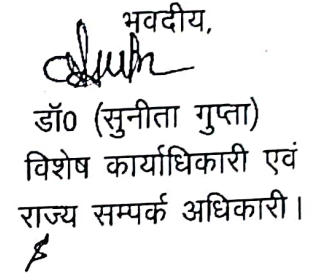 भवदीय,
डॉ0 (सुनीता गुप्ता)
विशेष कार्याधिकारी एवं
राज्य सम्पर्क अधिकारी।